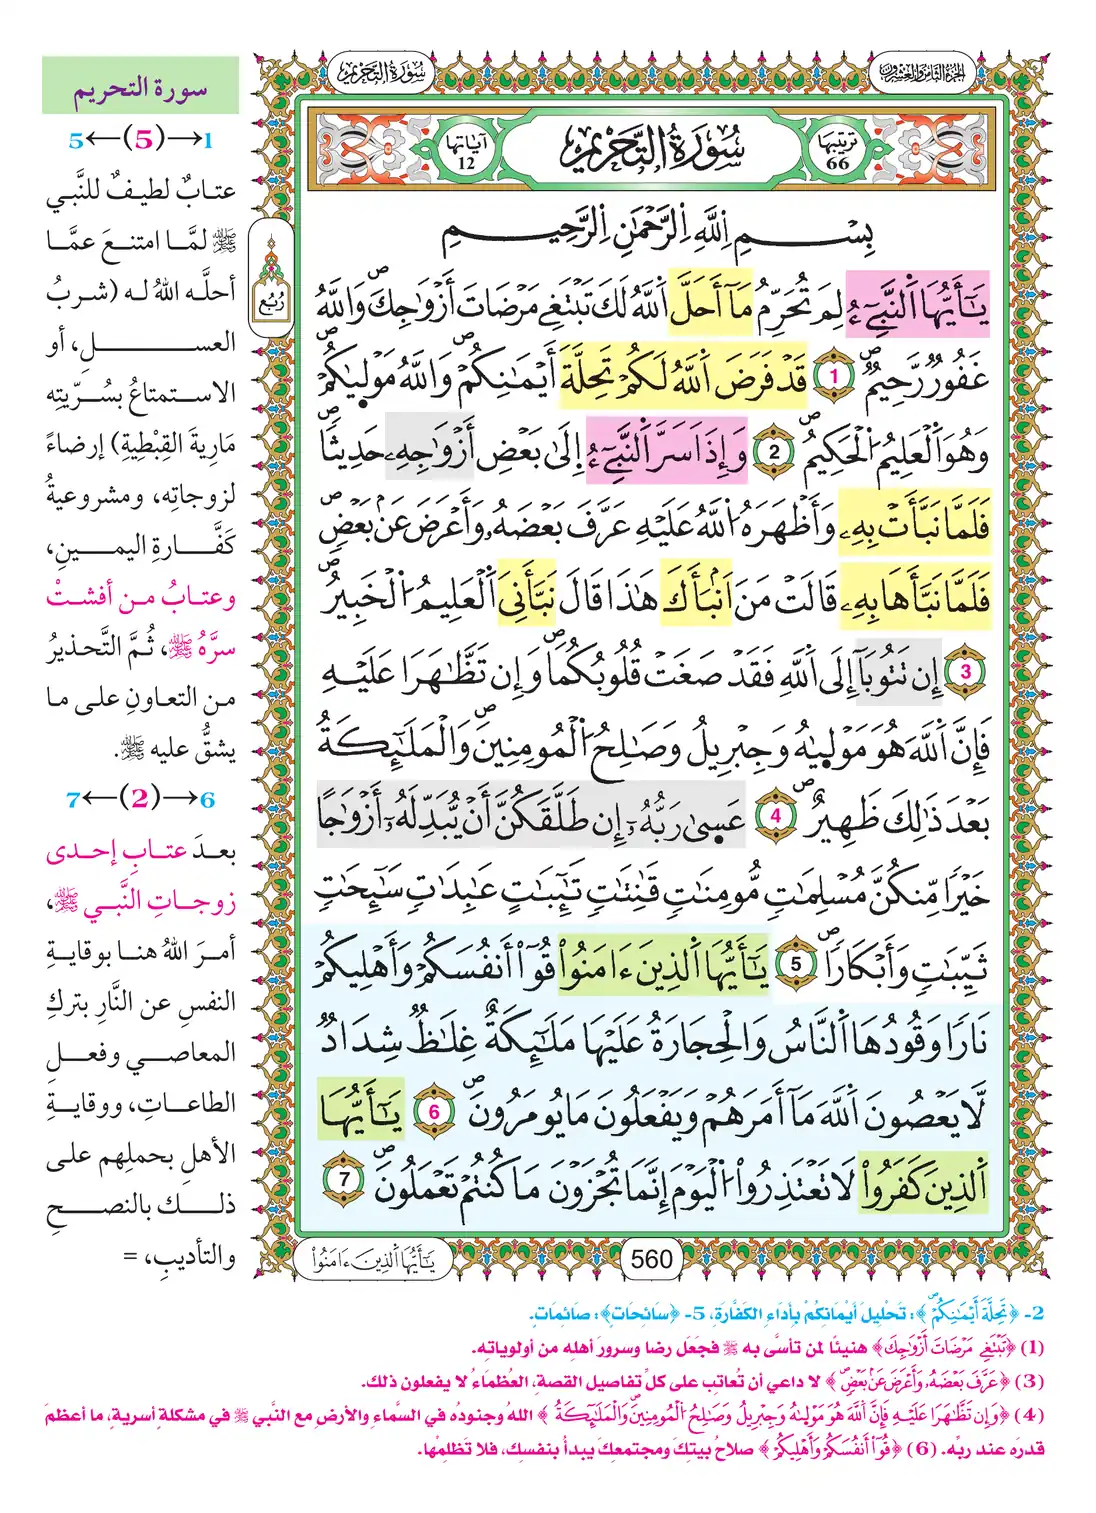 الجزء الثامن والعشرون
سورة التحريم
ترتيبها
66
سُورَةُ التَّحْرِيمِ
آياتها
12
بِسْمِ اِ۬للَّهِ اِ۬لرَّحْمَٰنِ اِ۬لرَّحِيمِ
يَٰٓأَيُّهَا اَ۬لنَّبِےٓءُ لِمَ تُحَرِّمُ مَآ أَحَلَّ اَ۬للَّهُ لَكَ تَبْتَغِے مَرْضَاتَ أَزْوَٰجِكَۖ وَاللَّهُ
غَفُورٞ رَّحِيمٞۖ 1 قَدْ فَرَضَ اَ۬للَّهُ لَكُمْ تَحِلَّةَ أَيْمَٰنِكُمْۖ وَاللَّهُ مَوْل۪يٰكُمْۖ
وَهُوَ اَ۬لْعَلِيمُ اُ۬لْحَكِيمُۖ 2 وَإِذَ اَسَرَّ اَ۬لنَّبِےٓءُ إِلَىٰ بَعْضِ أَزْوَٰجِهِۦ حَدِيثاٗۖ
فَلَمَّا نَبَّأَتْ بِهِۦ وَأَظْهَرَهُ اُ۬للَّهُ عَلَيْهِ عَرَّفَ بَعْضَهُۥ وَأَعْرَضَ عَنۢ بَعْضٖۖ
فَلَمَّا نَبَّأَهَا بِهِۦ قَالَتْ مَنَ اَنۢبَأَكَ هَٰذَا قَالَ نَبَّأَنِيَ اَ۬لْعَلِيمُ اُ۬لْخَبِيرُۖ
3 إِن تَتُوبَآ إِلَى اَ۬للَّهِ فَقَدْ صَغَتْ قُلُوبُكُمَاۖ وَإِن تَظَّٰهَرَا عَلَيْهِ
فَإِنَّ اَ۬للَّهَ هُوَ مَوْل۪يٰهُ وَجِبْرِيلُ وَصَٰلِحُ اُ۬لْمُومِنِينَۖ وَالْمَلَٰٓئِكَةُ
بَعْدَ ذَٰلِكَ ظَهِيرٌۖ 4 عَس۪يٰ رَبُّهُۥٓ إِن طَلَّقَكُنَّ أَنْ يُّبَدِّلَهُۥٓ أَزْوَٰجاً
خَيْراٗ مِّنكُنَّ مُسْلِمَٰتٖ مُّومِنَٰتٖ قَٰنِتَٰتٖ تَٰٓئِبَٰتٍ عَٰبِدَٰتٖ سَٰٓئِحَٰتٖ
ثَيِّبَٰتٖ وَأَبْكَاراٗۖ 5 يَٰٓأَيُّهَا اَ۬لذِينَ ءَامَنُواْ قُوٓاْ أَنفُسَكُمْ وَأَهْلِيكُمْ
نَاراٗ وَقُودُهَا اَ۬لنَّاسُ وَالْحِجَارَةُ عَلَيْهَا مَلَٰٓئِكَةٌ غِلَٰظٞ شِدَادٞ
لَّا يَعْصُونَ اَ۬للَّهَ مَآ أَمَرَهُمْ وَيَفْعَلُونَ مَا يُومَرُونَۖ 6 يَٰٓأَيُّهَا
اَ۬لذِينَ كَفَرُواْ لَا تَعْتَذِرُواْ اُ۬لْيَوْمَ إِنَّمَا تُجْزَوْنَ مَا كُنتُمْ تَعْمَلُونَۖ 7
560
يَٰٓأَيُّهَا اَ۬لذِينَ ءَامَنُواْ
رُبُع
سورة التحريم
1→(5)←5
عتابٌ لطيفٌ للنَّبي
ﷺ لمَّا امتنعَ عمَّا
أحلَّه اللهُ له (شربُ
العسلِ، أو
الاستمتاعُ بسُرِّيتِه
مَاريةَ القِبْطِيةِ) إرضاءً
لزوجاتِه، ومشروعيةُ
كَفَّارةِ اليمينِ،
وعتابُ من أفشتْ
سرَّهُ ﷺ، ثُمَّ التَّحذيرُ
من التعاونِ على ما
يشقُّ عليه ﷺ.
6→(2)←7
بعدَ عتابِ إحدى
زوجاتِ النَّبي ﷺ،
أمرَ اللهُ هنا بوقايةِ
النفسِ عن النَّارِ بتركِ
المعاصي وفعلِ
الطاعاتِ، ووقايةِ
الأهلِ بحملِهم على
ذلك بالنصحِ
والتأديبِ، =
2- ﴿تَحِلَّةَ أَيْمَٰنِكُمْۖ﴾: تَحْلِيلَ أَيْمَانِكُمْ بِأَدَاءِ الكَفَّارَةِ، 5- ﴿سَائِحَاتٍ﴾: صَائِمَاتٍ.
(1) ﴿تَبْتَغِے مَرْضَاتَ أَزْوَٰجِكَ﴾ هنيئًا لمن تأسَّى به ﷺ فجَعَل رضا وسرور أهلِه من أولوياتِه.
(3) ﴿عَرَّفَ بَعْضَهُۥ وَأَعْرَضَ عَنۢ بَعْضٖۖ﴾ لا داعي أن تُعاتِب على كلِّ تفاصيل القصة، العظماءُ لا يفعلون ذلك.
(4) ﴿وَإِن تَظَّٰهَرَا عَلَيْهِ فَإِنَّ اَ۬للَّهَ هُوَ مَوْل۪يٰهُ وَجِبْرِيلُ وَصَٰلِحُ اُ۬لْمُومِنِينَۖ وَالْمَلَٰٓئِكَةُ﴾ اللهُ وجنودُه في السَّماءِ والأرضِ مع النَّبي ﷺ في مشكلةٍ أسريةٍ، ما أعظمَ
قدرَه عند ربِّه. (6) ﴿قُوٓاْ أَنفُسَكُمْ وَأَهْلِيكُمْ﴾ صلاحُ بيتِكَ ومجتمعِكَ يبدأُ بنفسِك، فلا تَظلِمْها.